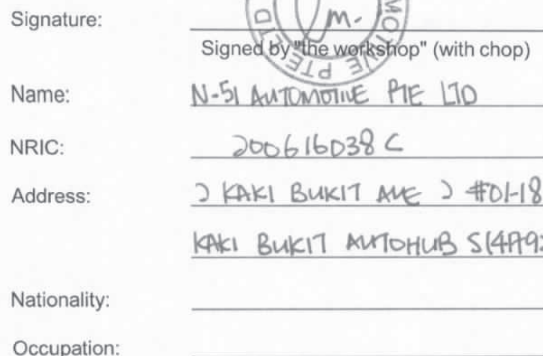 Signature:
OMOTIVE PTE LTD
m.
Signed by "the workshop" (with chop)
Name: N-51 AUTOMOTIVE PTE LTD
NRIC: 200616038C
Address: 2 KAKI BUKIT AVE 2 #01-18
KAKI BUKIT AUTOHUB
Nationality:
Occupation: